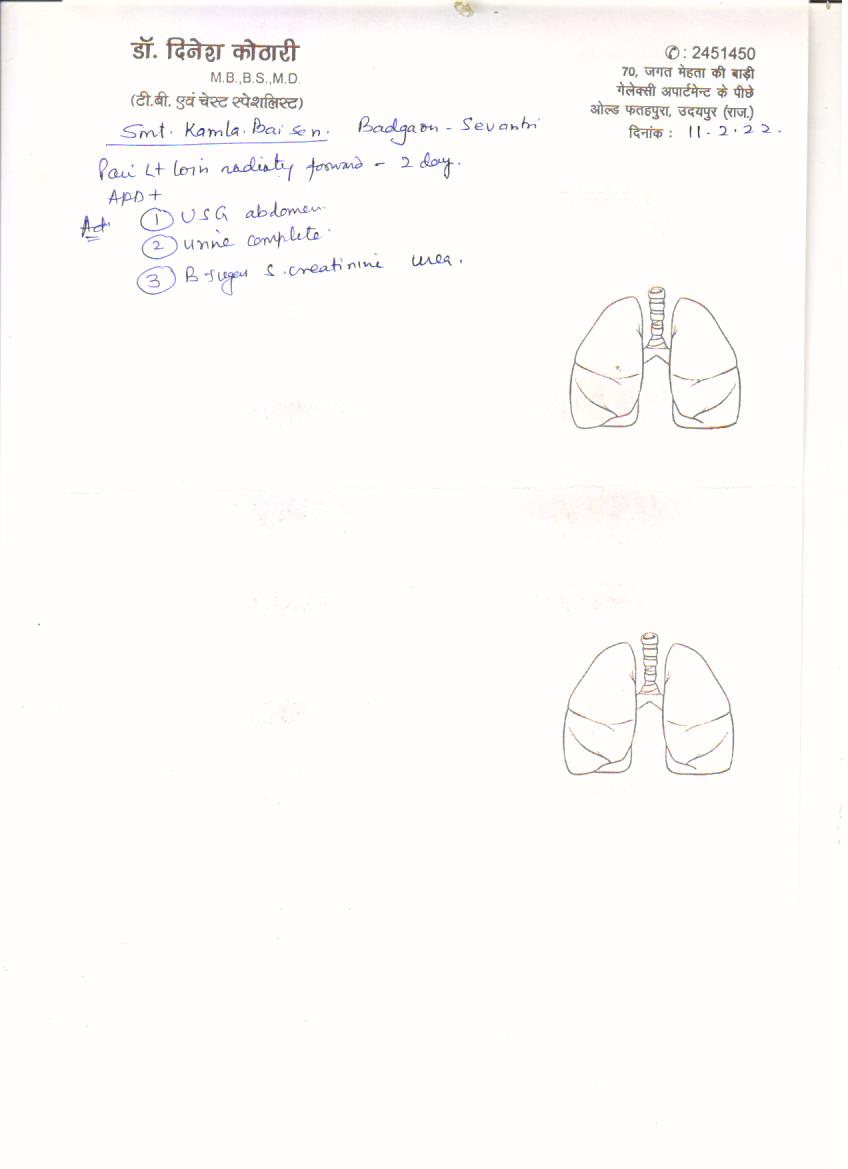 डॉ. दिनेश कोठारी
M.B.,B.S.,M.D.
(टी.बी. एवं चेस्ट स्पेशलिस्ट)
✆ : 2451450
70, जगत मेहता की बाड़ी
गेलेक्सी अपार्टमेन्ट के पीछे
ओल्ड फतहपुरा, उदयपुर (राज.)
दिनांक : 11.2.22.
Smt. Kamla.Bai Sen. Badgaon - Sevantri
Pain Lt loin radiaty forward - 2 day.
APD +
Ad.
① USG abdomen
② Urine complete.
③ B-sugar S.creatinine urea.